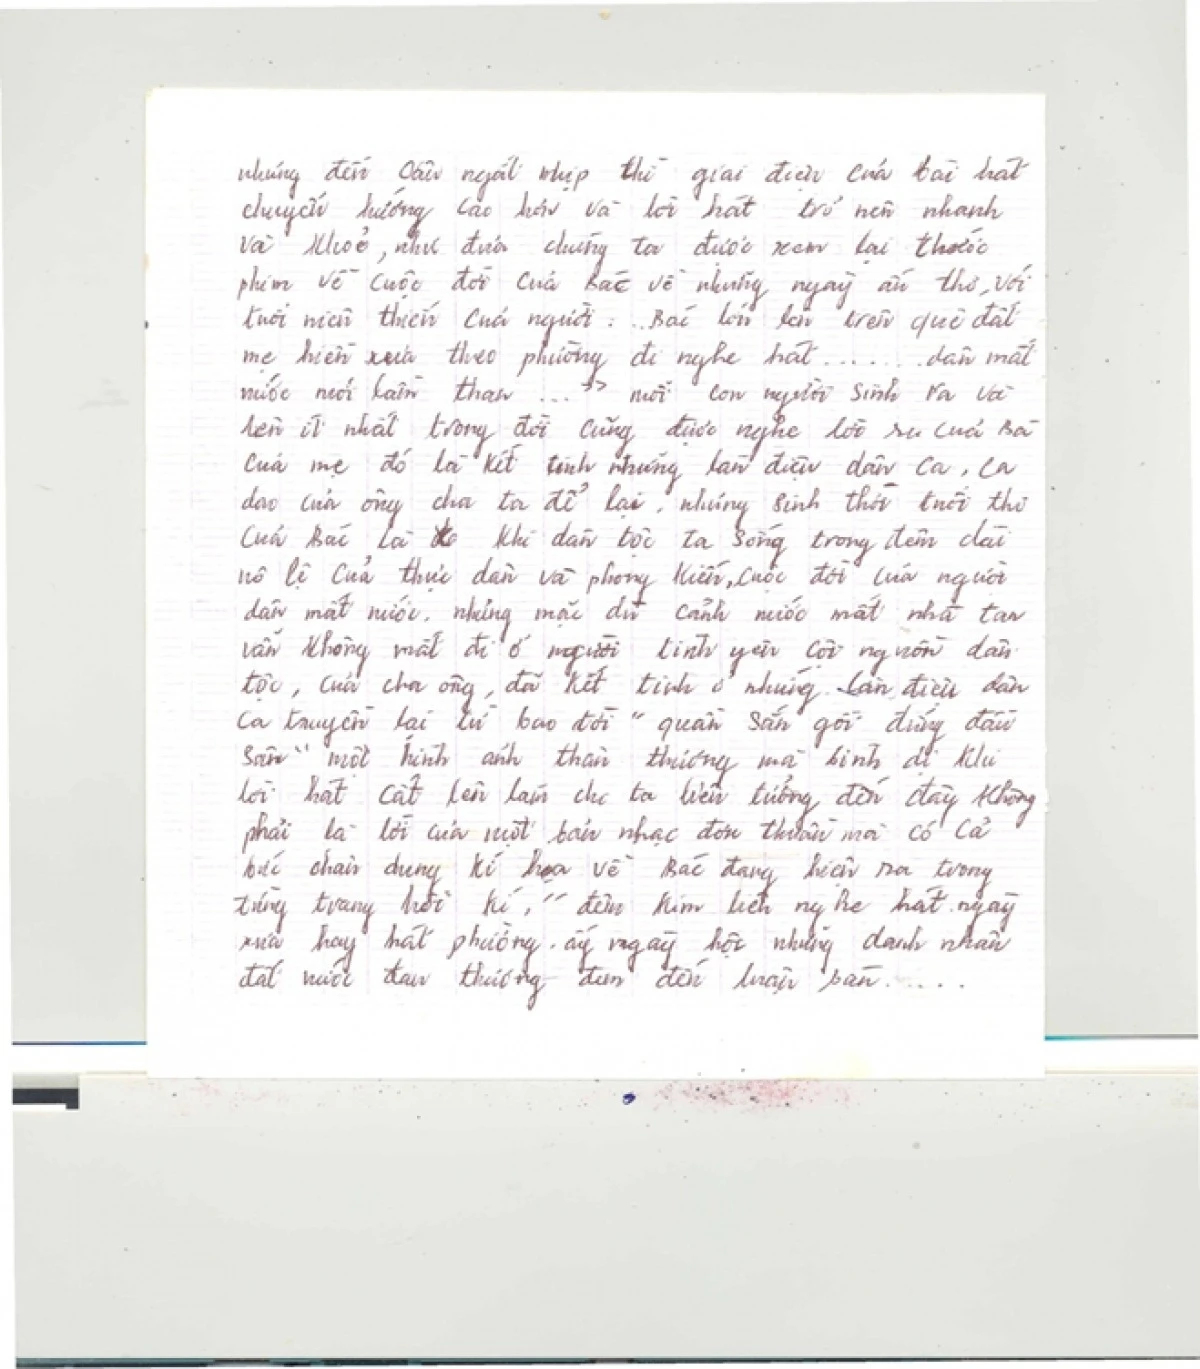 những đến câu ngắt nhịp thì giai điệu của bài hát
chuyển hướng cao hơn và lời hát trở nên nhanh
và khoẻ, như đưa chúng ta được xem lại thước
phim về cuộc đời của Bác về những ngày ấu thơ, với
tuổi niên thiếu của người: ..Bác lớn lên trên quê đất
mẹ hiền xưa theo phường đi nghe hát ....... dân mất
nước nơi lầm than ..." mỗi con người sinh ra và
lên ít nhất trong đời cũng được nghe lời ru của Bà
của mẹ đó là kết tinh những làn điệu dân ca, ca
dao của ông cha ta để lại, nhưng sinh thời tuổi thơ
của Bác là khi dân tộc ta sống trong đêm dài
nô lệ của thực dân và phong kiến, cuộc đời của người
dân mất nước. nhưng mặc dù cảnh nước mất nhà tan
vẫn không mất đi ở người tình yêu cội nguồn dân
tộc, của cha ông, đã kết tinh ở những làn điệu dân
ca truyền lại từ bao đời " quần sắn gối đứng đầu
sân" một hình ảnh thân thương mà bình dị khi
lời hát cất lên làm cho ta liên tưởng đến đây không
phải là lời của một bản nhạc đơn thuần mà có cả
bức chân dung kí họa về Bác đang hiện ra trong
từng trang hồi kí, " đêm Kim liên nghe hát ngày
xưa hay hát phường. ấy ngày hội những danh nhân
đất nước đau thương đem đến luận bàn.....